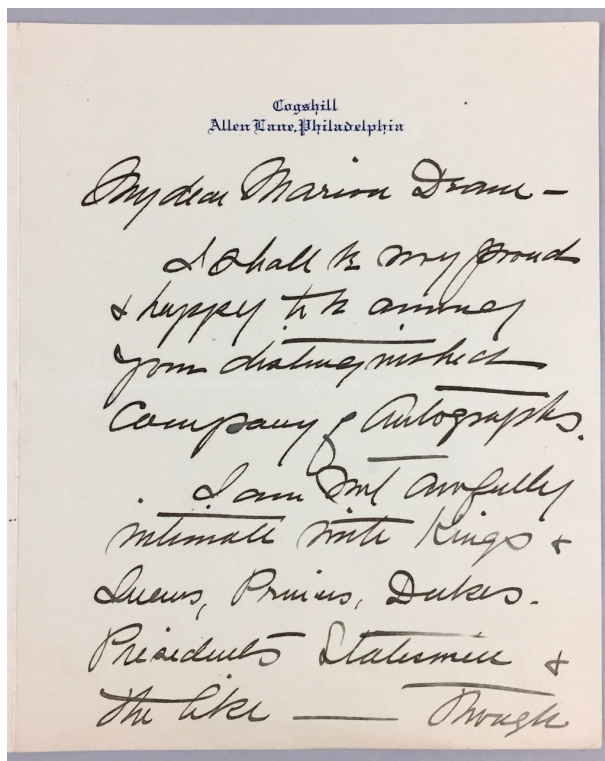 Cogshill
Allen Lane, Philadelphia
My dear Marion Deane –
I shall be very proud
& happy to be among
your distinguished
Company of Autographs.
I am not awfully
intimate with Kings &
Queens, Princes, Dukes.
Presidents Statesmen &
the like — Though